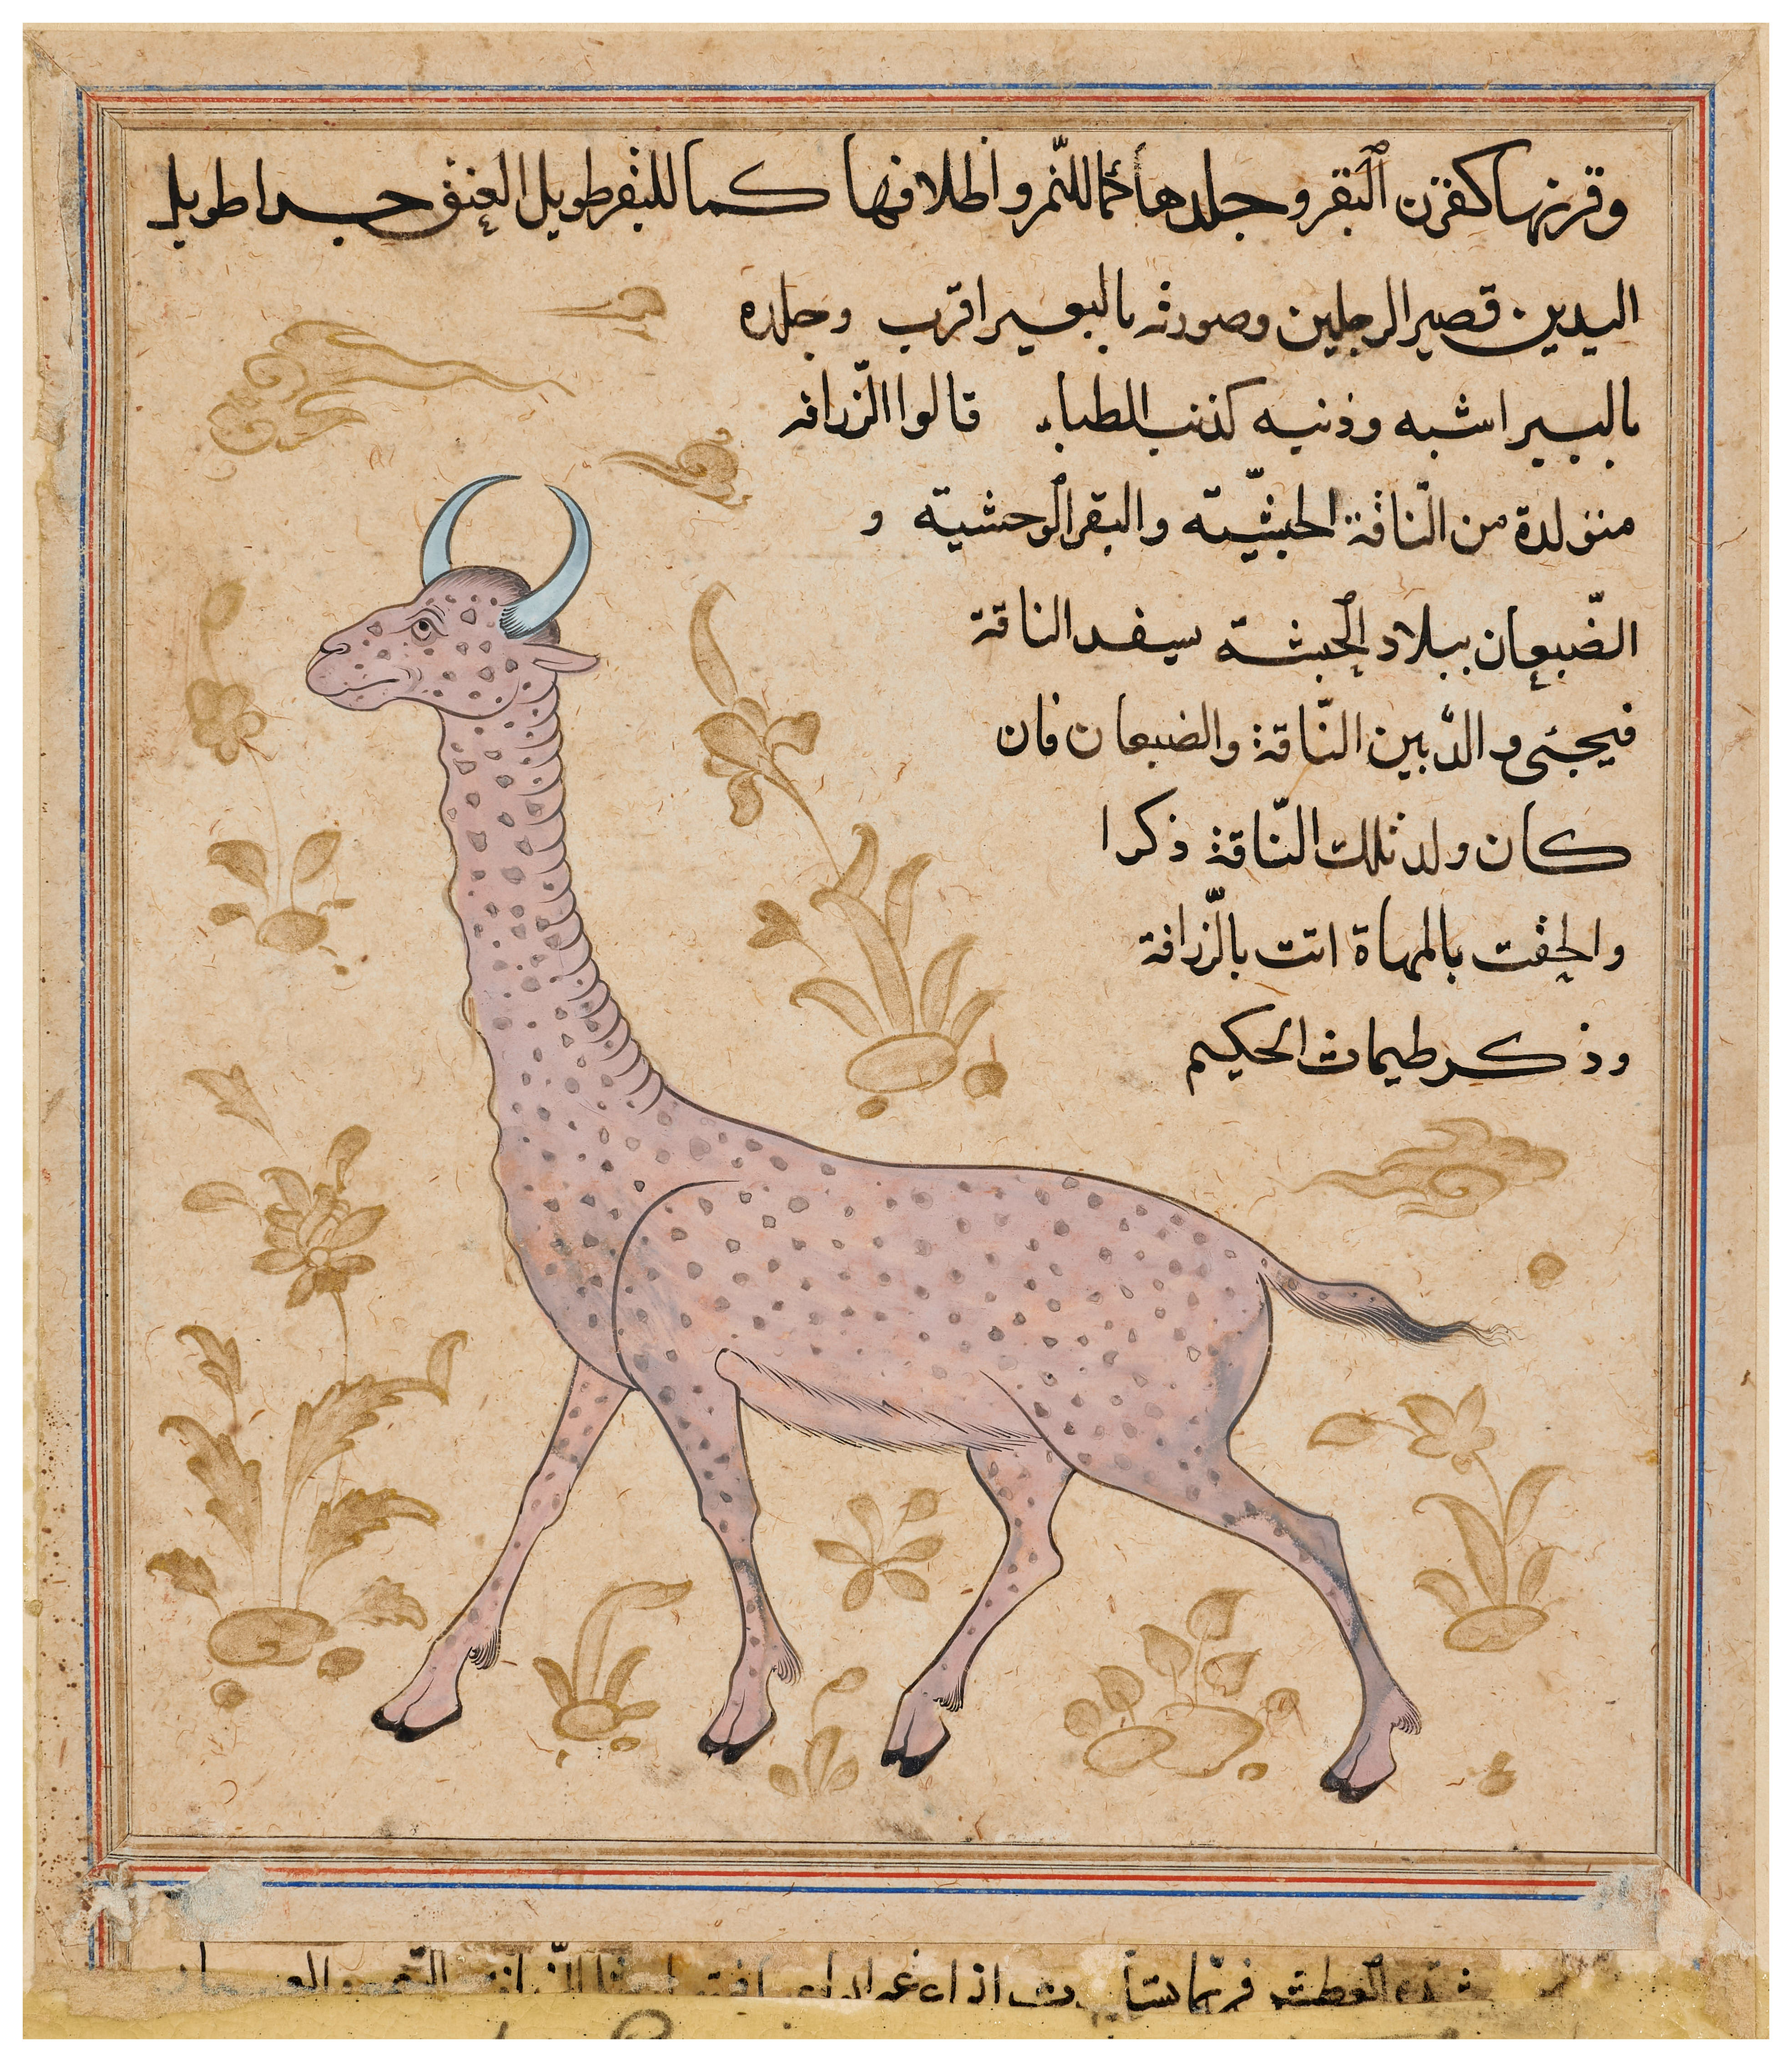 وقرنها كقرن البقر وجلدها كما للنمر واظلافها كما للبقر طويل العنق جدا طويل
اليدين قصير الرجلين وصورته بالبعير اقرب وجلده
بالببير اشبه وذنبه كذنب الظباء قالوا الزرافة
متولدة من النّاقة الحبشيّة والبقر الوحشية و
الضّبعان ببلاد الحبشة يسفد الناقة
فيجئ ولد بين النّاقة والضبعان فان
كان ولد تلك النّاقة ذكرا
والحقت بالمهاة اتت بالزّرافة
وذكر طيماث الحكيم
العطش فربما